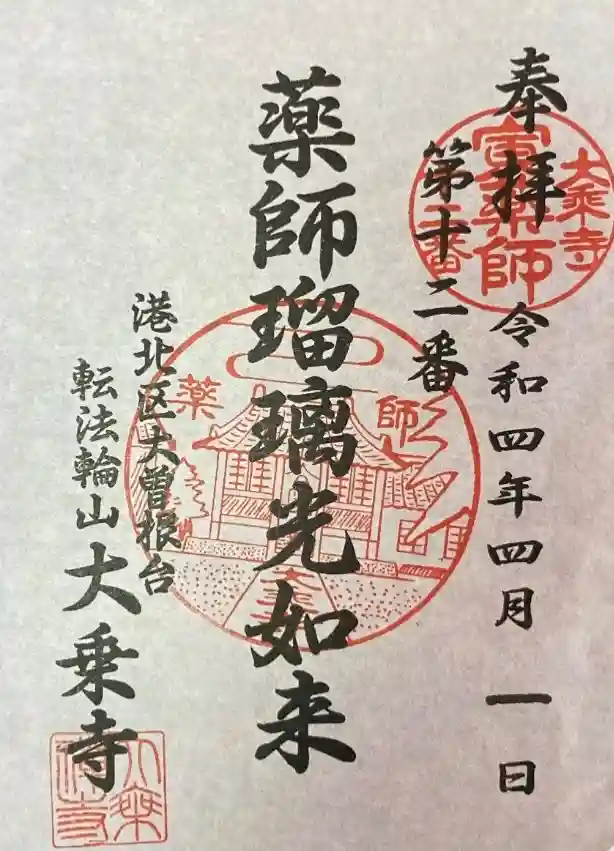 奉拝
令和四年四月一日
第十二番
大乗寺
寅薬師
薬師瑠璃光如来
薬師
港北区大曽根台
転法輪山大乗寺